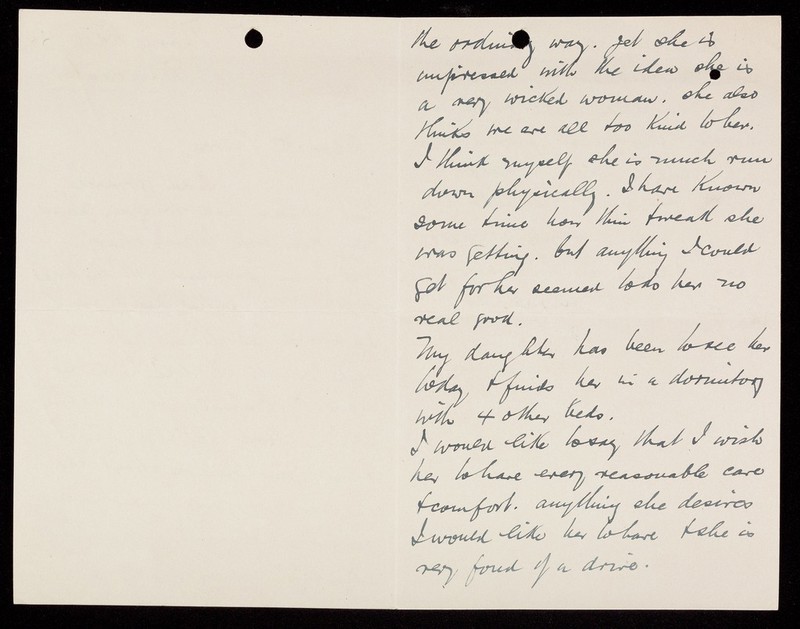 the ordinary way. yet she is
impressed with the idea she is
a very wicked woman. she also
thinks we are all too kind to her.
I think myself she is much run
down physically. I have known
some time how thin & weak she
was getting. but anything I could
get for her seemed to do her no
real good.
My daughter has been to see her
today & finds her in a dormitory
with 4 other beds.
I would like to say that I wish
her to have every reasonable care
& comfort. anything she desires
I would like her to have & she is
very fond of a drive.